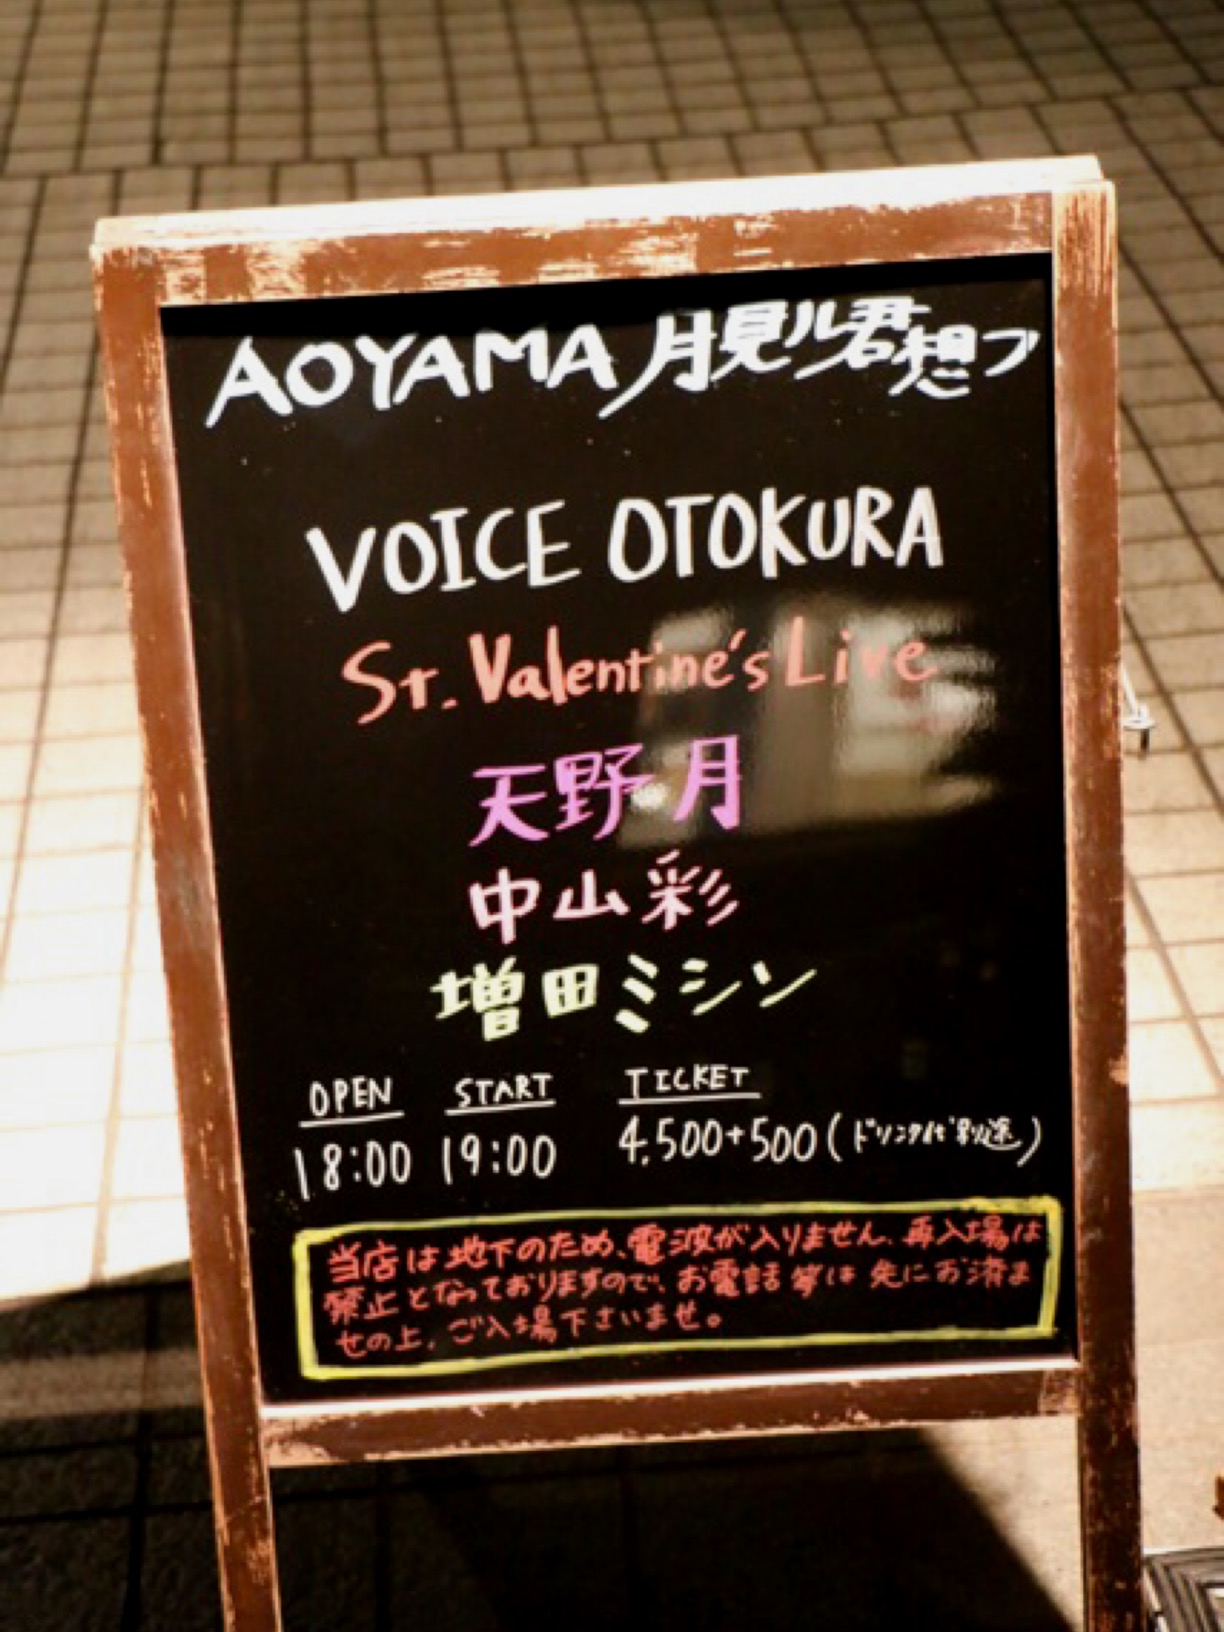 AOYAMA 月見ル君想フ
VOICE OTOKURA
St. Valentine's Live
天野 月
中山 彩
増田 ミシン
OPEN START TICKET
18:00 19:00 4,500+500(ドリンク代別途)
当店は地下のため、電波が入りません。再入場は
禁止となっておりますので、お電話等は先にお済ま
せの上、ご入場下さいませ。